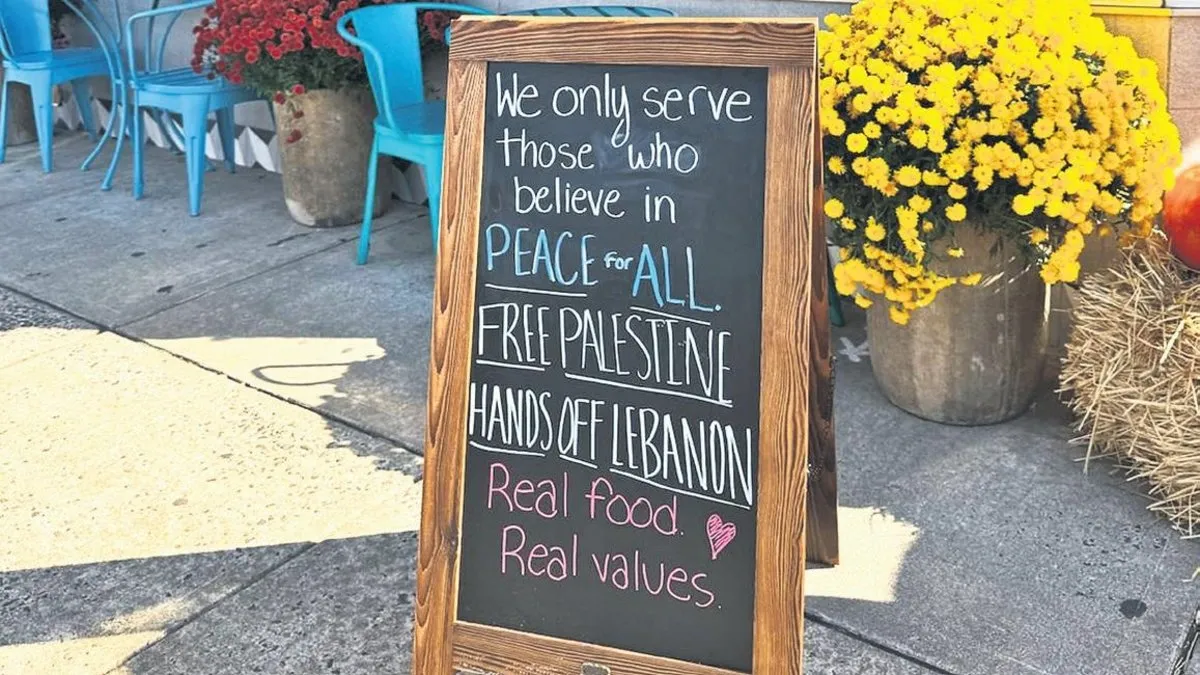 We only serve
those who
believe in
PEACE for ALL.
FREE PALESTINE
HANDS OFF LEBANON
Real food.
Real values.